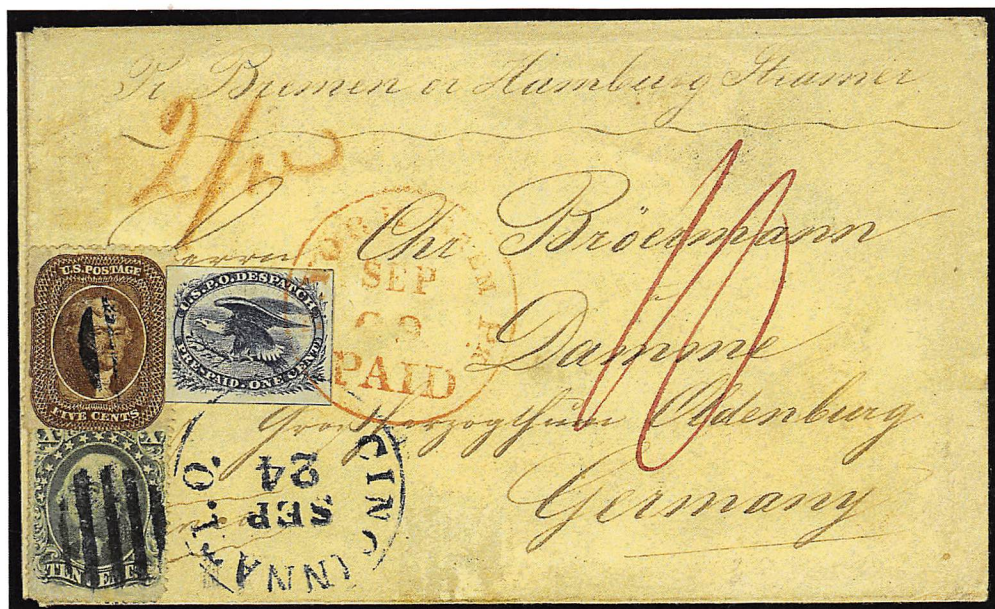 Pr Bremen or Hamburg Steamer
Herrn Chr Bröermann
Damme
Grossherzogthum Oldenburg
Germany
10
U.S. POSTAGE
FIVE CENTS
U.S.P.O. DESPATCH
PRE-PAID. ONE CENT
X X
TEN CENTS
SEP
PAID
CINCINNATI. O.
SEP
24